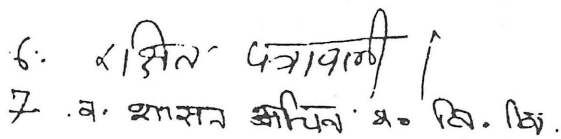 6. रक्षित पत्रावली ।
7. व. शासन सचिव व. वि. वि.